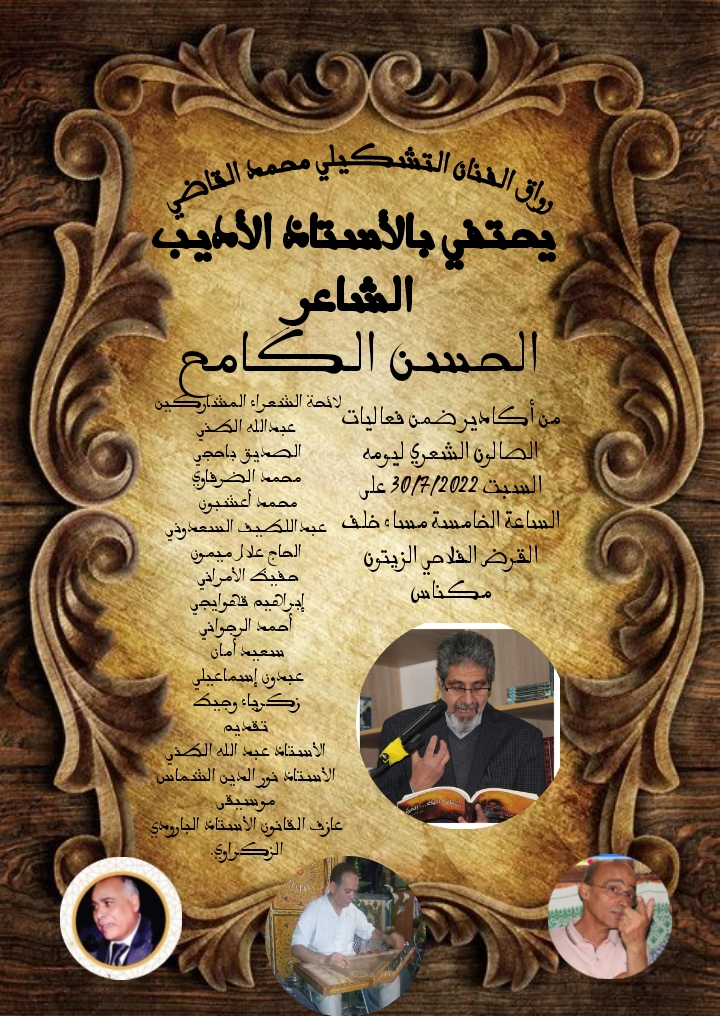 رواق الفنان التشكيلي محمد القاضي
يحتفي بالأستاذ الأديب
الشاعر
الحسن الكامح
من أكادير ضمن فعاليات
الصالون الشعري ليومه
السبت 30/7/2022 على
الساعة الخامسة مساء خلف
القرض الفلاحي الزيتون
مكناس
لائحة الشعراء المشاركين
عبدالله الطني
الصديق باحجي
محمد الضرفاوي
محمد أعشبون
عبداللطيف السعدوني
الحاج علال ميمون
حفيظ الأمراني
إبراهيم قهوايجي
أحمد الرجواني
سعيد أمان
عبدون إسماعيلي
زكرياء وجيط
تقديم
الأستاذ عبد الله الطني
الأستاذ نور الدين الشماس
موسيقى
عازف القانون الأستاذ البارودي
الزكراوي.